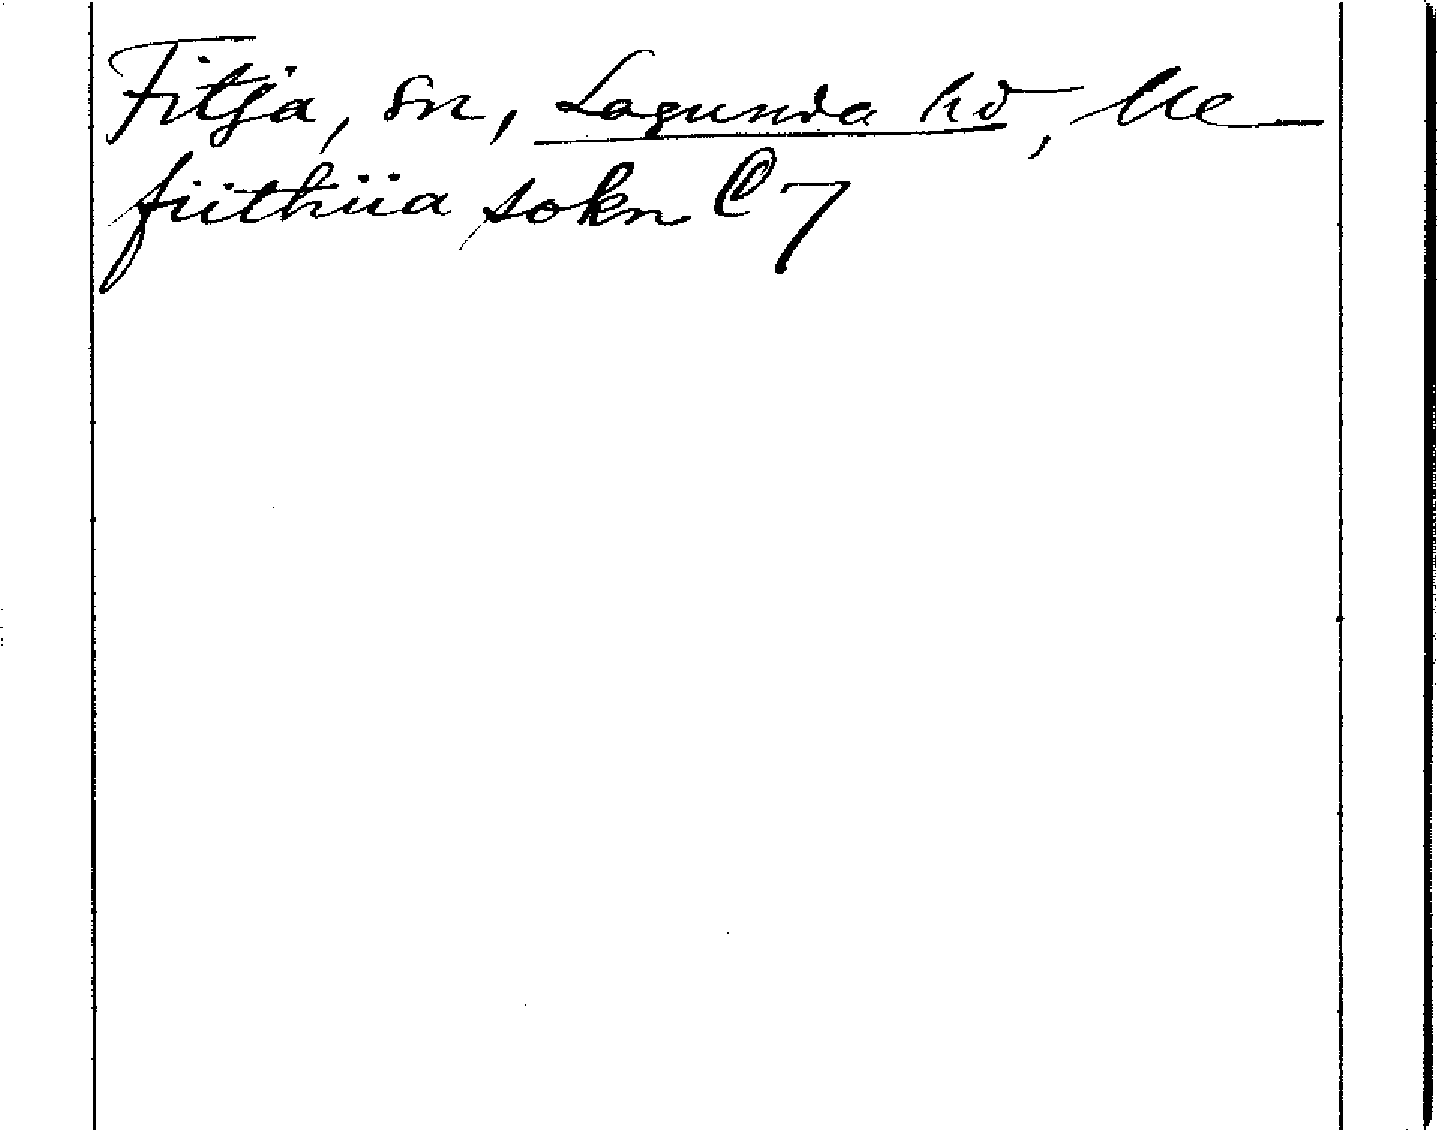 Fitja, sn, Lagunda hd, Ue
fiithiia sokn C7